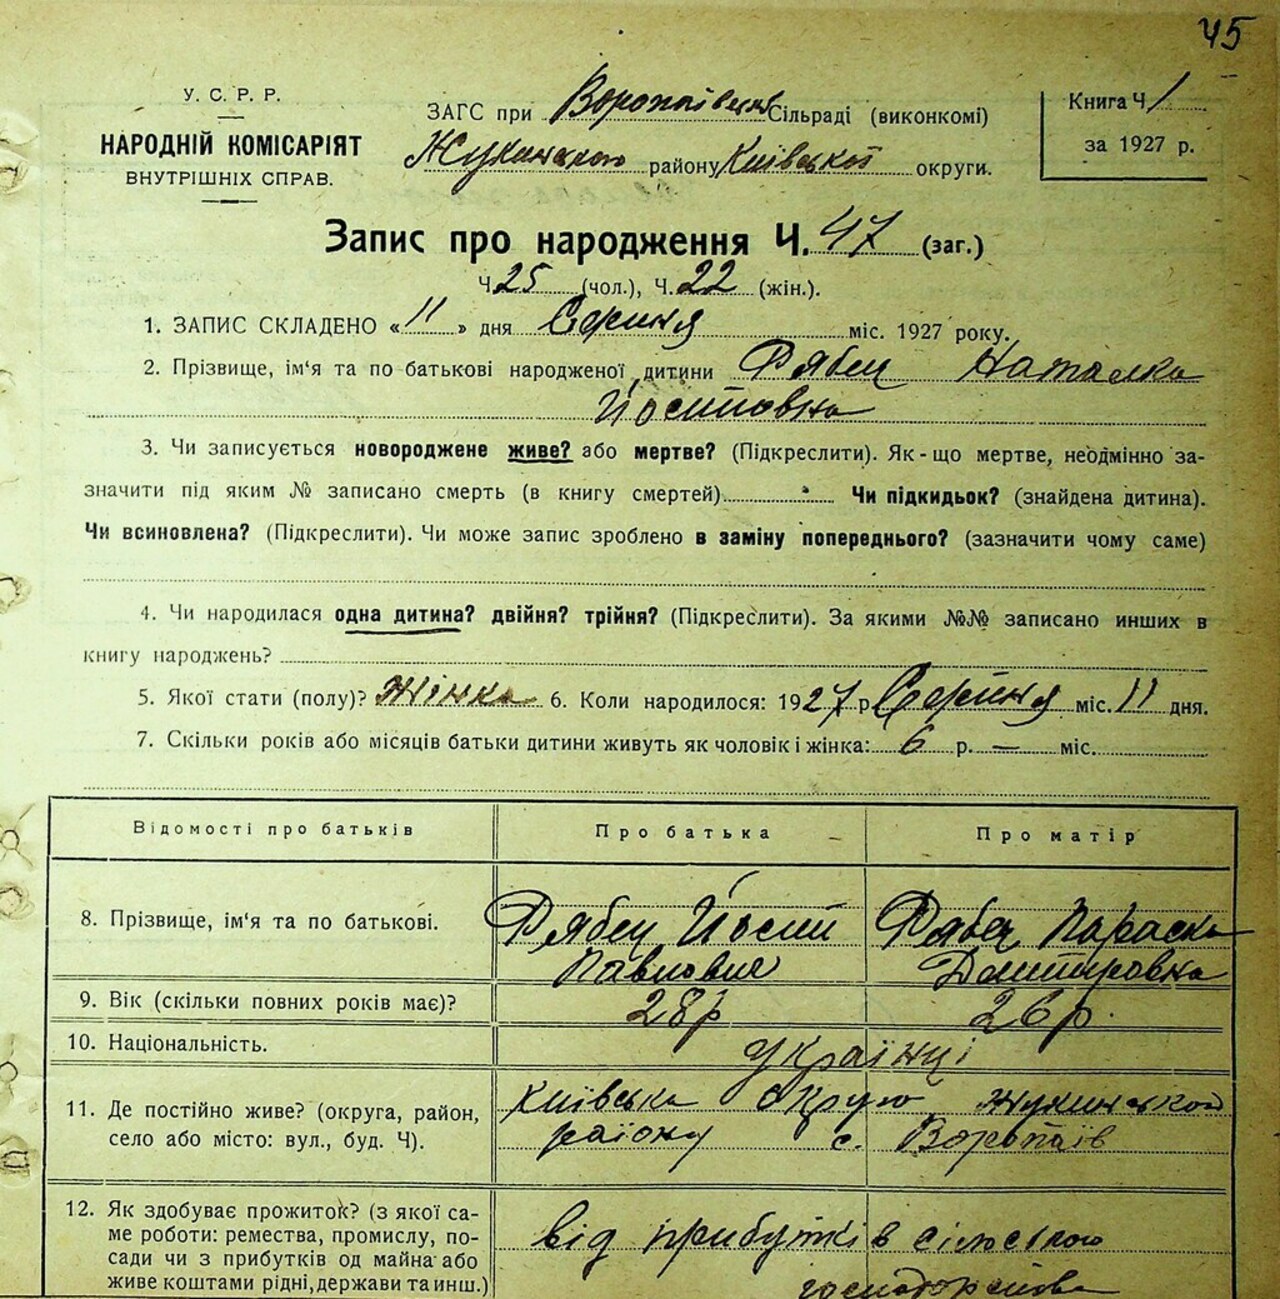 45
У. С. Р. Р.
НАРОДНІЙ КОМІСАРІЯТ
ВНУТРІШНІХ СПРАВ.
ЗАГС при Воропаївській Сільраді (виконкомі)
Жукинського району Київської округи.
Книга Ч. 1
за 1927 р.
Запис про народження Ч. 47 (заг.)
Ч. 25 (чол.), Ч. 22 (жін.).
1. ЗАПИС СКЛАДЕНО «11» дня Серпня міс. 1927 року.
2. Прізвище, ім'я та по батькові народженої дитини Рябец Наталка
Йосиповна
3. Чи записується новороджене живе? або мертве? (Підкреслити). Як-що мертве, неодмінно за-
значити під яким № записано смерть (в книгу смертей) Чи підкидьок? (знайдена дитина).
Чи всиновлена? (Підкреслити). Чи може запис зроблено в заміну попереднього? (зазначити чому саме)
4. Чи народилася одна дитина? двійня? трійня? (Підкреслити). За якими №№ записано инших в
книгу народжень?
5. Якої стати (полу)? Жінка 6. Коли народилося: 1927 р. Серпня міс. 11 дня.
7. Скільки років або місяців батьки дитини живуть як чоловік і жінка: 6 р. — міс.
Відомості про батьків Про батька Про матір
8. Прізвище, ім'я та по батькові. Рябец Йосип Рябец Параска
Павлович Дмитровна
9. Вік (скільки повних років має)? 28 р 26 р.
10. Національність. Українці
11. Де постійно живе? (округа, район, Київська округа Жукинського
село або місто: вул., буд. Ч). району с. Воропаїв
12. Як здобуває прожиток? (з якої са-
ме роботи: ремества, промислу, по- від прибутків сільского
сади чи з прибутків од майна або
живе коштами рідні, держави та инш.) господарства